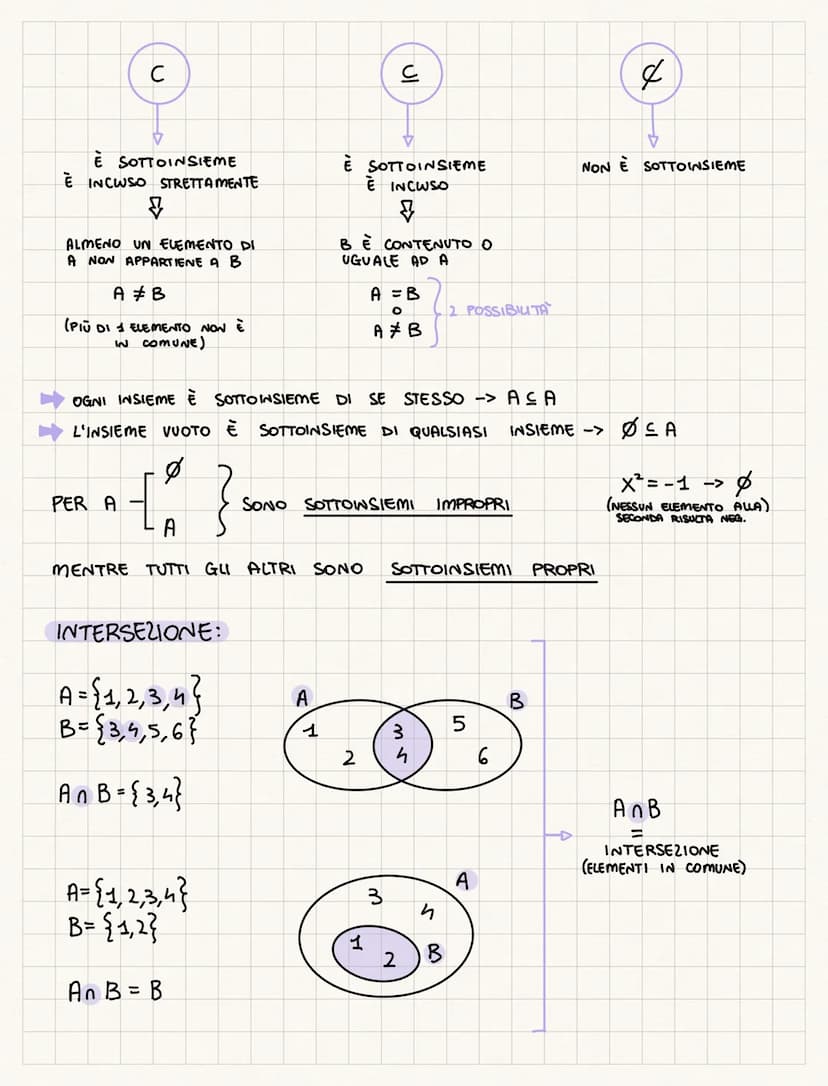 ⊂
⊆
⊄
È SOTTOINSIEME
È INCLUSO STRETTAMENTE
ALMENO UN ELEMENTO DI
A NON APPARTIENE A B
A ≠ B
(PIÙ DI 1 ELEMENTO NON È
IN COMUNE)
È SOTTOINSIEME
È INCLUSO
B È CONTENUTO O
UGUALE AD A
A = B
O
A ≠ B
2 POSSIBILITÀ
NON È SOTTOINSIEME
OGNI INSIEME È SOTTOINSIEME DI SE STESSO -> A ⊆ A
L'INSIEME VUOTO È SOTTOINSIEME DI QUALSIASI INSIEME -> ∅ ⊆ A
PER A
∅
A
SONO SOTTOINSIEMI IMPROPRI
x² = -1 -> ∅
(NESSUN ELEMENTO ALLA)
SECONDA RISULTA NEG.
MENTRE TUTTI GLI ALTRI SONO SOTTOINSIEMI PROPRI
INTERSEZIONE:
A = {1, 2, 3, 4}
B = {3, 4, 5, 6}
A ∩ B = {3, 4}
A
B
1
2
3
4
5
6
A = {1, 2, 3, 4}
B = {1, 2}
A ∩ B = B
A
3
4
1
2
B
A ∩ B
=
INTERSEZIONE
(ELEMENTI IN COMUNE)